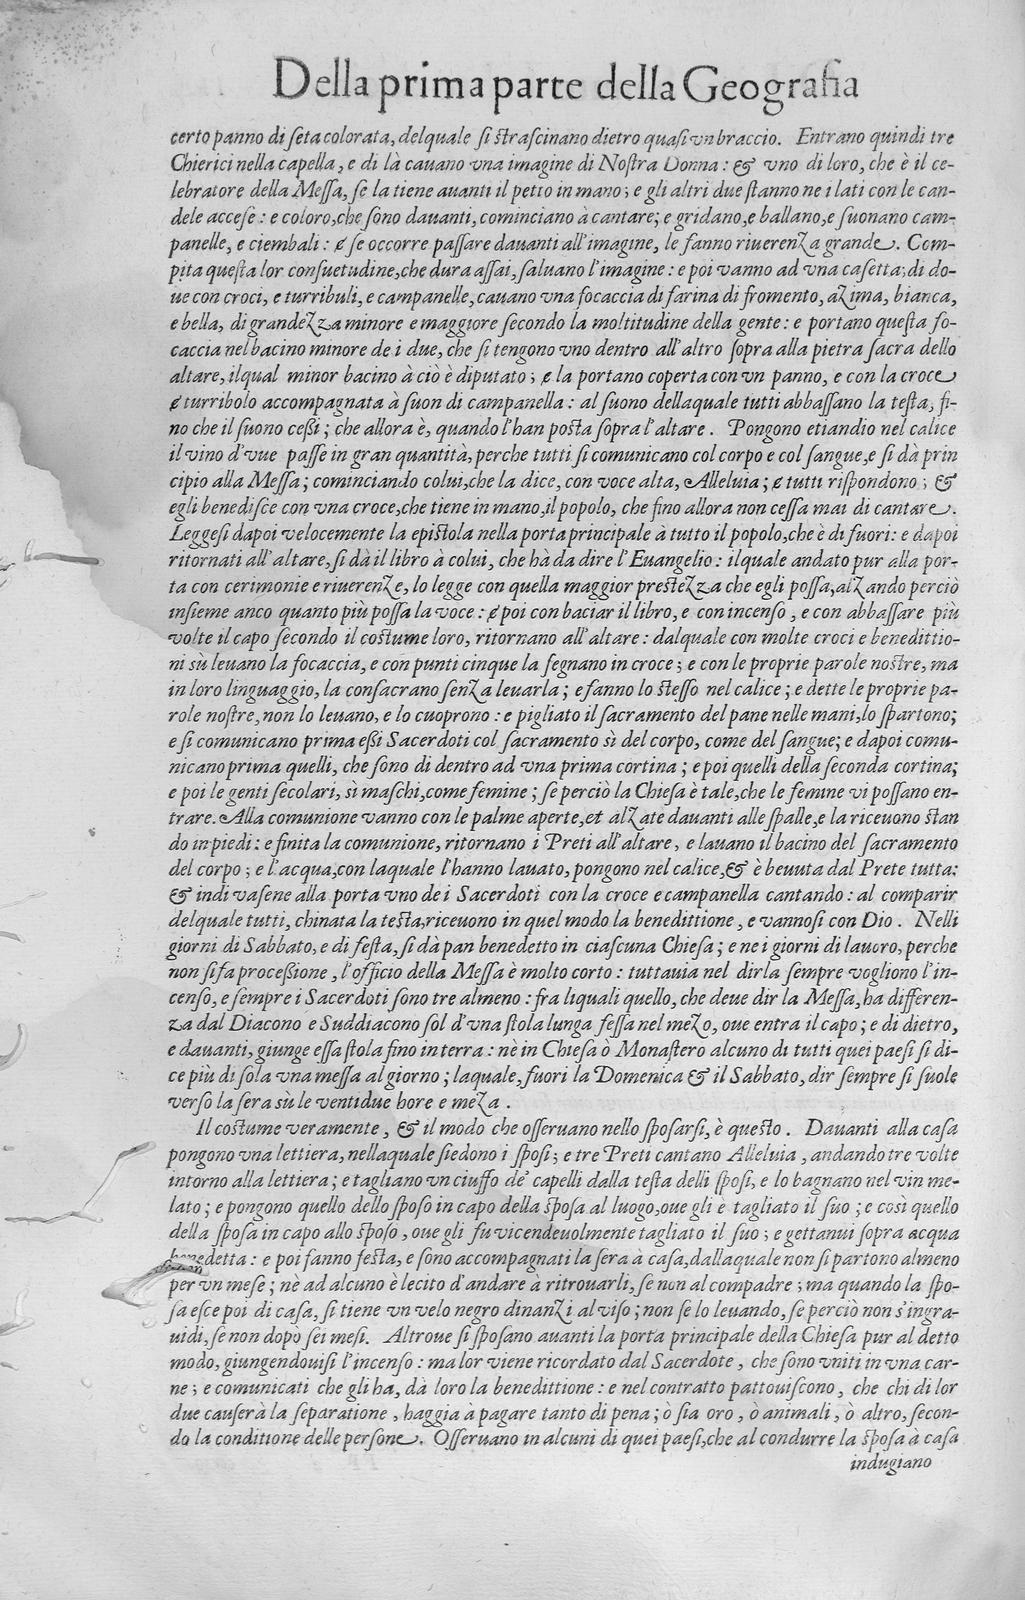 Della prima parte della Geografia
certo panno di seta colorata, delquale si strascinano dietro quasi vn braccio. Entrano quindi tre
Chierici nella capella, e di là cauano vna imagine di Nostra Donna: & vno di loro, che è il ce-
lebratore della Messa, se la tiene auanti il petto in mano; e gli altri due stanno ne i lati con le can-
dele accese: e coloro, che sono dauanti, cominciano à cantare; e gridano, e ballano, e suonano cam-
panelle, e ciembali: & se occorre passare dauanti all'imagine, le fanno riuerenza grande. Com-
pita questa lor consuetudine, che dura assai, saluano l'imagine: e poi vanno ad vna casetta; di do-
ue con croci, e turribuli, e campanelle, cauano vna focaccia di farina di fromento, azima, bianca,
e bella, di grandezza minore e maggiore secondo la moltitudine della gente: e portano questa fo-
caccia nel bacino minore de i due, che si tengono vno dentro all'altro sopra alla pietra sacra dello
altare, ilqual minor bacino à ciò è diputato; & la portano coperta con vn panno, e con la croce
& turribolo accompagnata à suon di campanella: al suono dellaquale tutti abbassano la testa, fi-
no che il suono cessi; che allora è, quando l'han posta sopra l'altare. Pongono etiandio nel calice
il vino d'vue passe in gran quantità, perche tutti si comunicano col corpo e col sangue, e si dà prin
cipio alla Messa; cominciando colui, che la dice, con voce alta, Alleluia; & tutti rispondono; &
egli benedisce con vna croce, che tiene in mano, il popolo, che fino allora non cessa mai di cantare.
Leggesi dapoi velocemente la epistola nella porta principale à tutto il popolo, che è di fuori: e dapoi
ritornati all'altare, si dà il libro à colui, che hà da dire l'Euangelio: ilquale andato pur alla por-
ta con cerimonie e riuerenze, lo legge con quella maggior prestezza che egli possa, alzando perciò
insieme anco quanto più possa la voce: & poi con baciar il libro, e con incenso, e con abbassare più
volte il capo secondo il costume loro, ritornano all'altare: dalquale con molte croci e benedittio-
ni sù leuano la focaccia, e con punti cinque la segnano in croce; e con le proprie parole nostre, ma
in loro linguaggio, la consacrano senza leuarla; e fanno lo stesso nel calice; e dette le proprie pa-
role nostre, non lo leuano, e lo cuoprono: e pigliato il sacramento del pane nelle mani, lo spartono;
e si comunicano prima essi Sacerdoti col sacramento sì del corpo, come del sangue; e dapoi comu-
nicano prima quelli, che sono di dentro ad vna prima cortina; e poi quelli della seconda cortina;
e poi le genti secolari, sì maschi, come femine; se perciò la Chiesa è tale, che le femine vi possano en-
trare. Alla comunione vanno con le palme aperte, et alzate dauanti alle spalle, e la riceuono stan
do in piedi: e finita la comunione, ritornano i Preti all'altare, e lauano il bacino del sacramento
del corpo; e l'acqua, con laquale l'hanno lauato, pongono nel calice, & è beuuta dal Prete tutta:
& indi vasene alla porta vno de i Sacerdoti con la croce e campanella cantando: al comparir
delquale tutti, chinata la testa, riceuono in quel modo la benedittione, e vannosi con Dio. Nelli
giorni di Sabbato, e di festa, si dà pan benedetto in ciascuna Chiesa; e ne i giorni di lauoro, perche
non si fa processione, l'officio della Messa è molto corto: tuttauia nel dirla sempre vogliono l'in-
censo, e sempre i Sacerdoti sono tre almeno: fra liquali quello, che deue dir la Messa, ha differen-
za dal Diacono e Suddiacono sol d'vna stola lunga fessa nel mezo, oue entra il capo; e di dietro,
e dauanti, giunge essa stola fino in terra: nè in Chiesa ò Monastero alcuno di tutti quei paesi si di-
ce più di sola vna messa al giorno; laquale, fuori la Domenica & il Sabbato, dir sempre si suole
verso la sera sù le ventidue hore e meza.
Il costume veramente, & il modo che osseruano nello sposarsi, è questo. Dauanti alla casa
pongono vna lettiera, nellaquale siedono i sposi; e tre Preti cantano Alleluia, andando tre volte
intorno alla lettiera; e tagliano vn ciuffo de' capelli dalla testa delli sposi, e lo bagnano nel vin me-
lato; e pongono quello dello sposo in capo della sposa al luogo, oue gli è tagliato il suo; e così quello
della sposa in capo allo sposo, oue gli fu vicendeuolmente tagliato il suo; e gettanui sopra acqua
benedetta: e poi fanno festa, e sono accompagnati la sera à casa, dallaquale non si partono almeno
per vn mese; nè ad alcuno è lecito d'andare à ritrouarli, se non al compadre; ma quando la spo-
sa esce poi di casa, si tiene vn velo negro dinanzi al viso; non se lo leuando, se perciò non s'ingra-
uidi, se non dopò sei mesi. Altroue si sposano auanti la porta principale della Chiesa pur al detto
modo, giungendouisi l'incenso: ma lor viene ricordato dal Sacerdote, che sono vniti in vna car-
ne; e comunicati che gli ha, dà loro la benedittione: e nel contratto pattouiscono, che chi di lor
due causerà la separatione, haggia à pagare tanto di pena; ò sia oro, ò animali, ò altro, secon-
do la conditione delle persone. Osseruano in alcuni di quei paesi, che al condurre la sposa à casa
indugiano